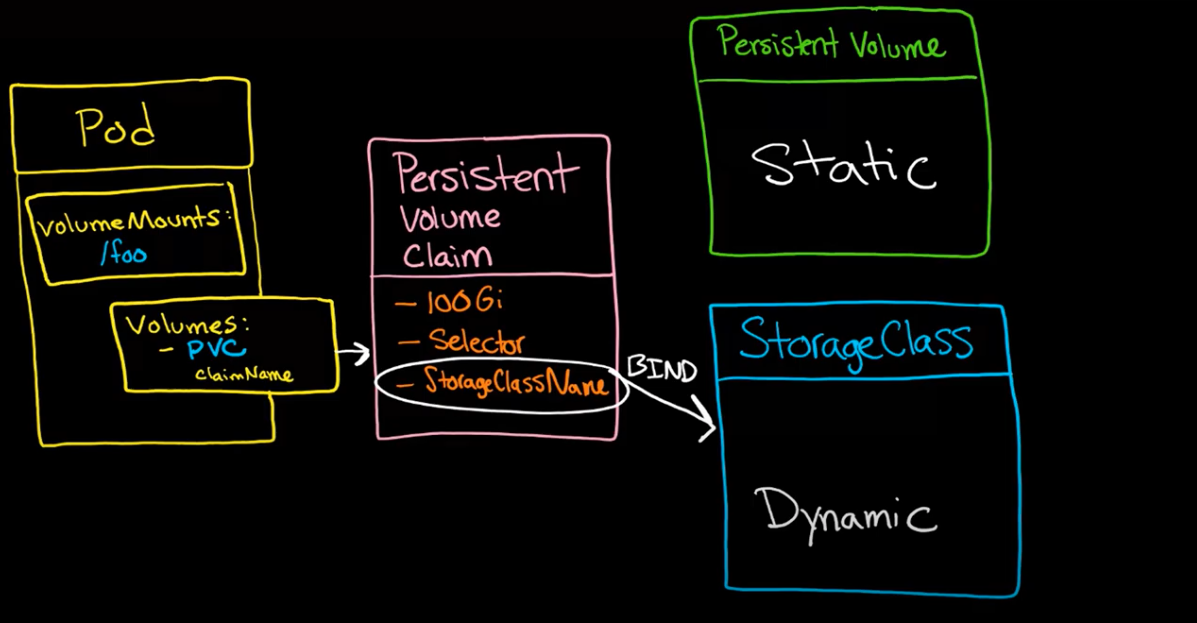 Pod
volumeMounts:
/foo
Volumes:
- PVC
claimName
Persistent
Volume
Claim
- 100Gi
- Selector
- StorageClassName
BIND
Persistent Volume
Static
StorageClass
Dynamic